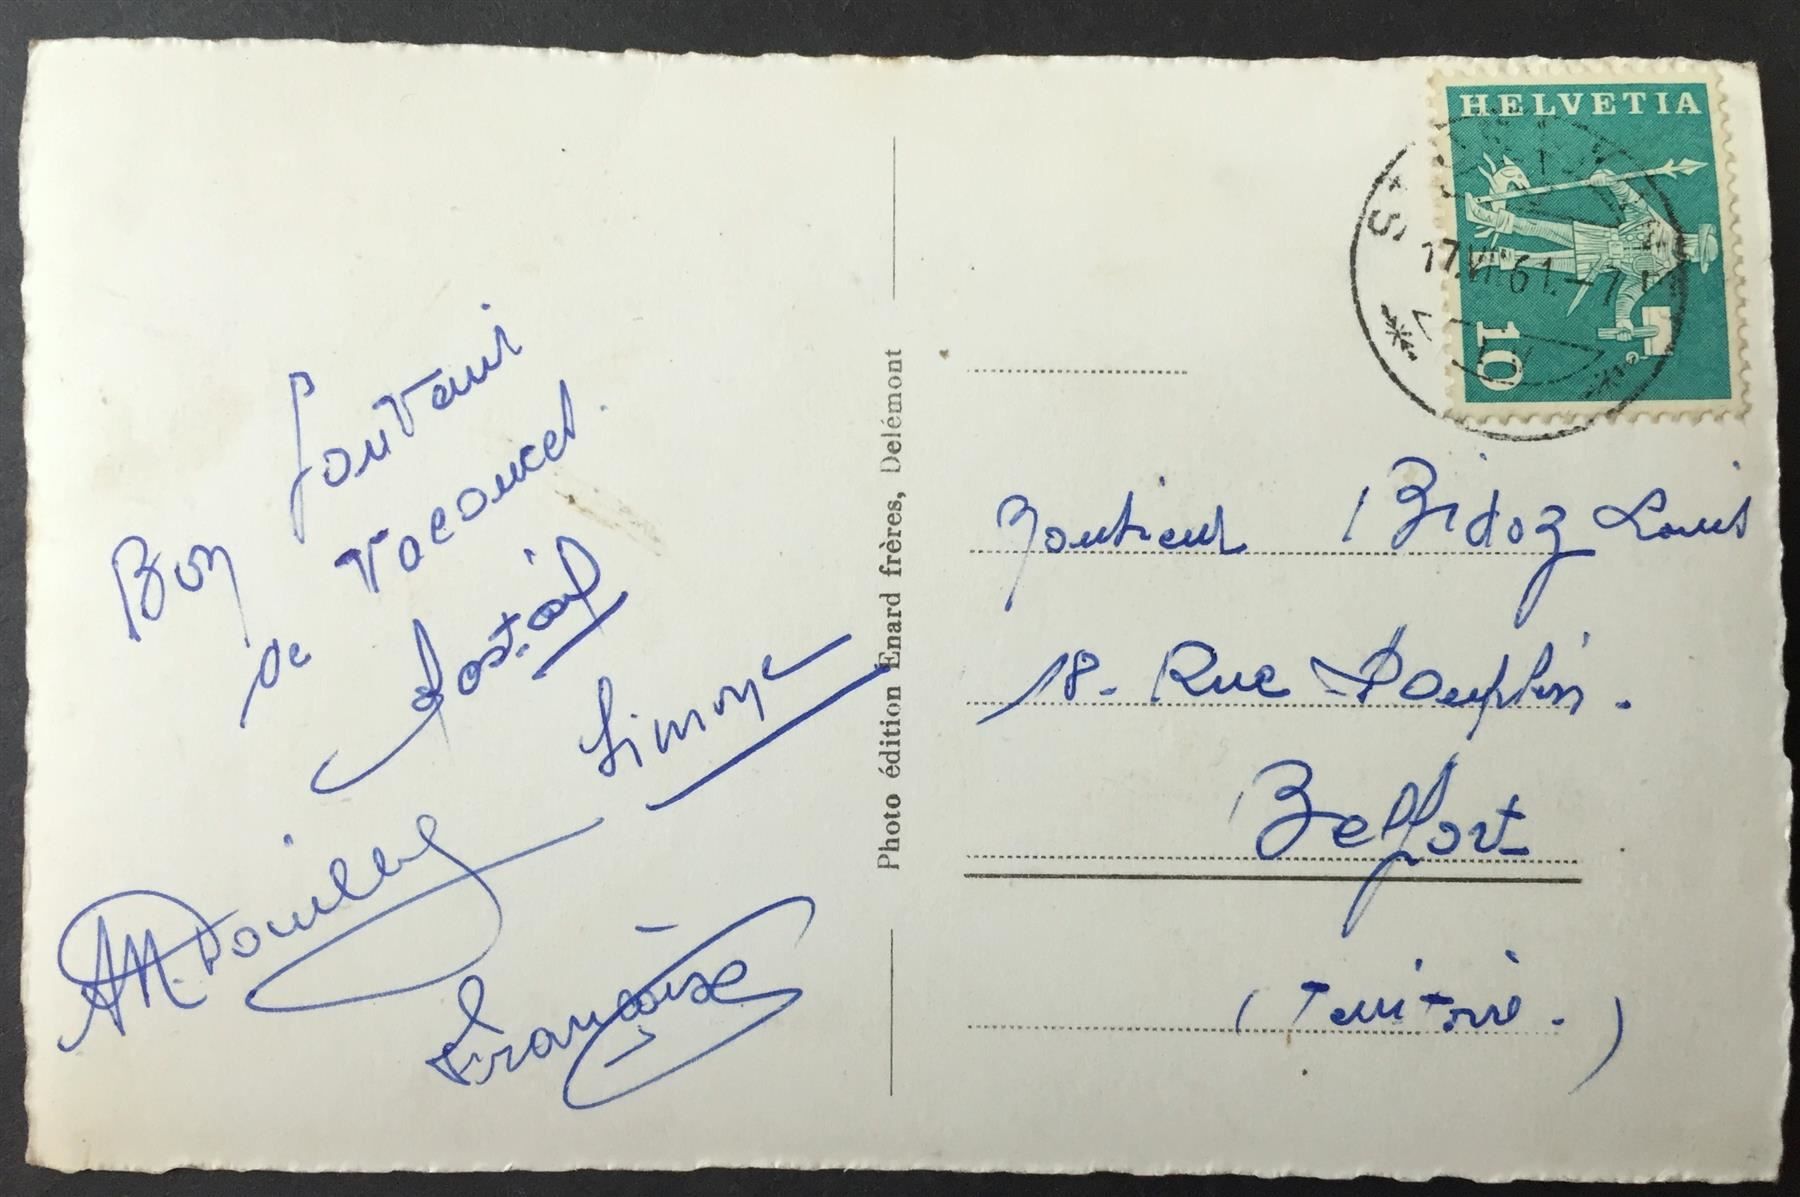 Bon Souvenir
de Vacances.
Simone
Françoise
Photo édition Enard frères, Delémont
HELVETIA
10
17.VII.61.-7
Monsieur Bidoz Louis
18- Rue Dauphin.
Belfort
(Territoire.)